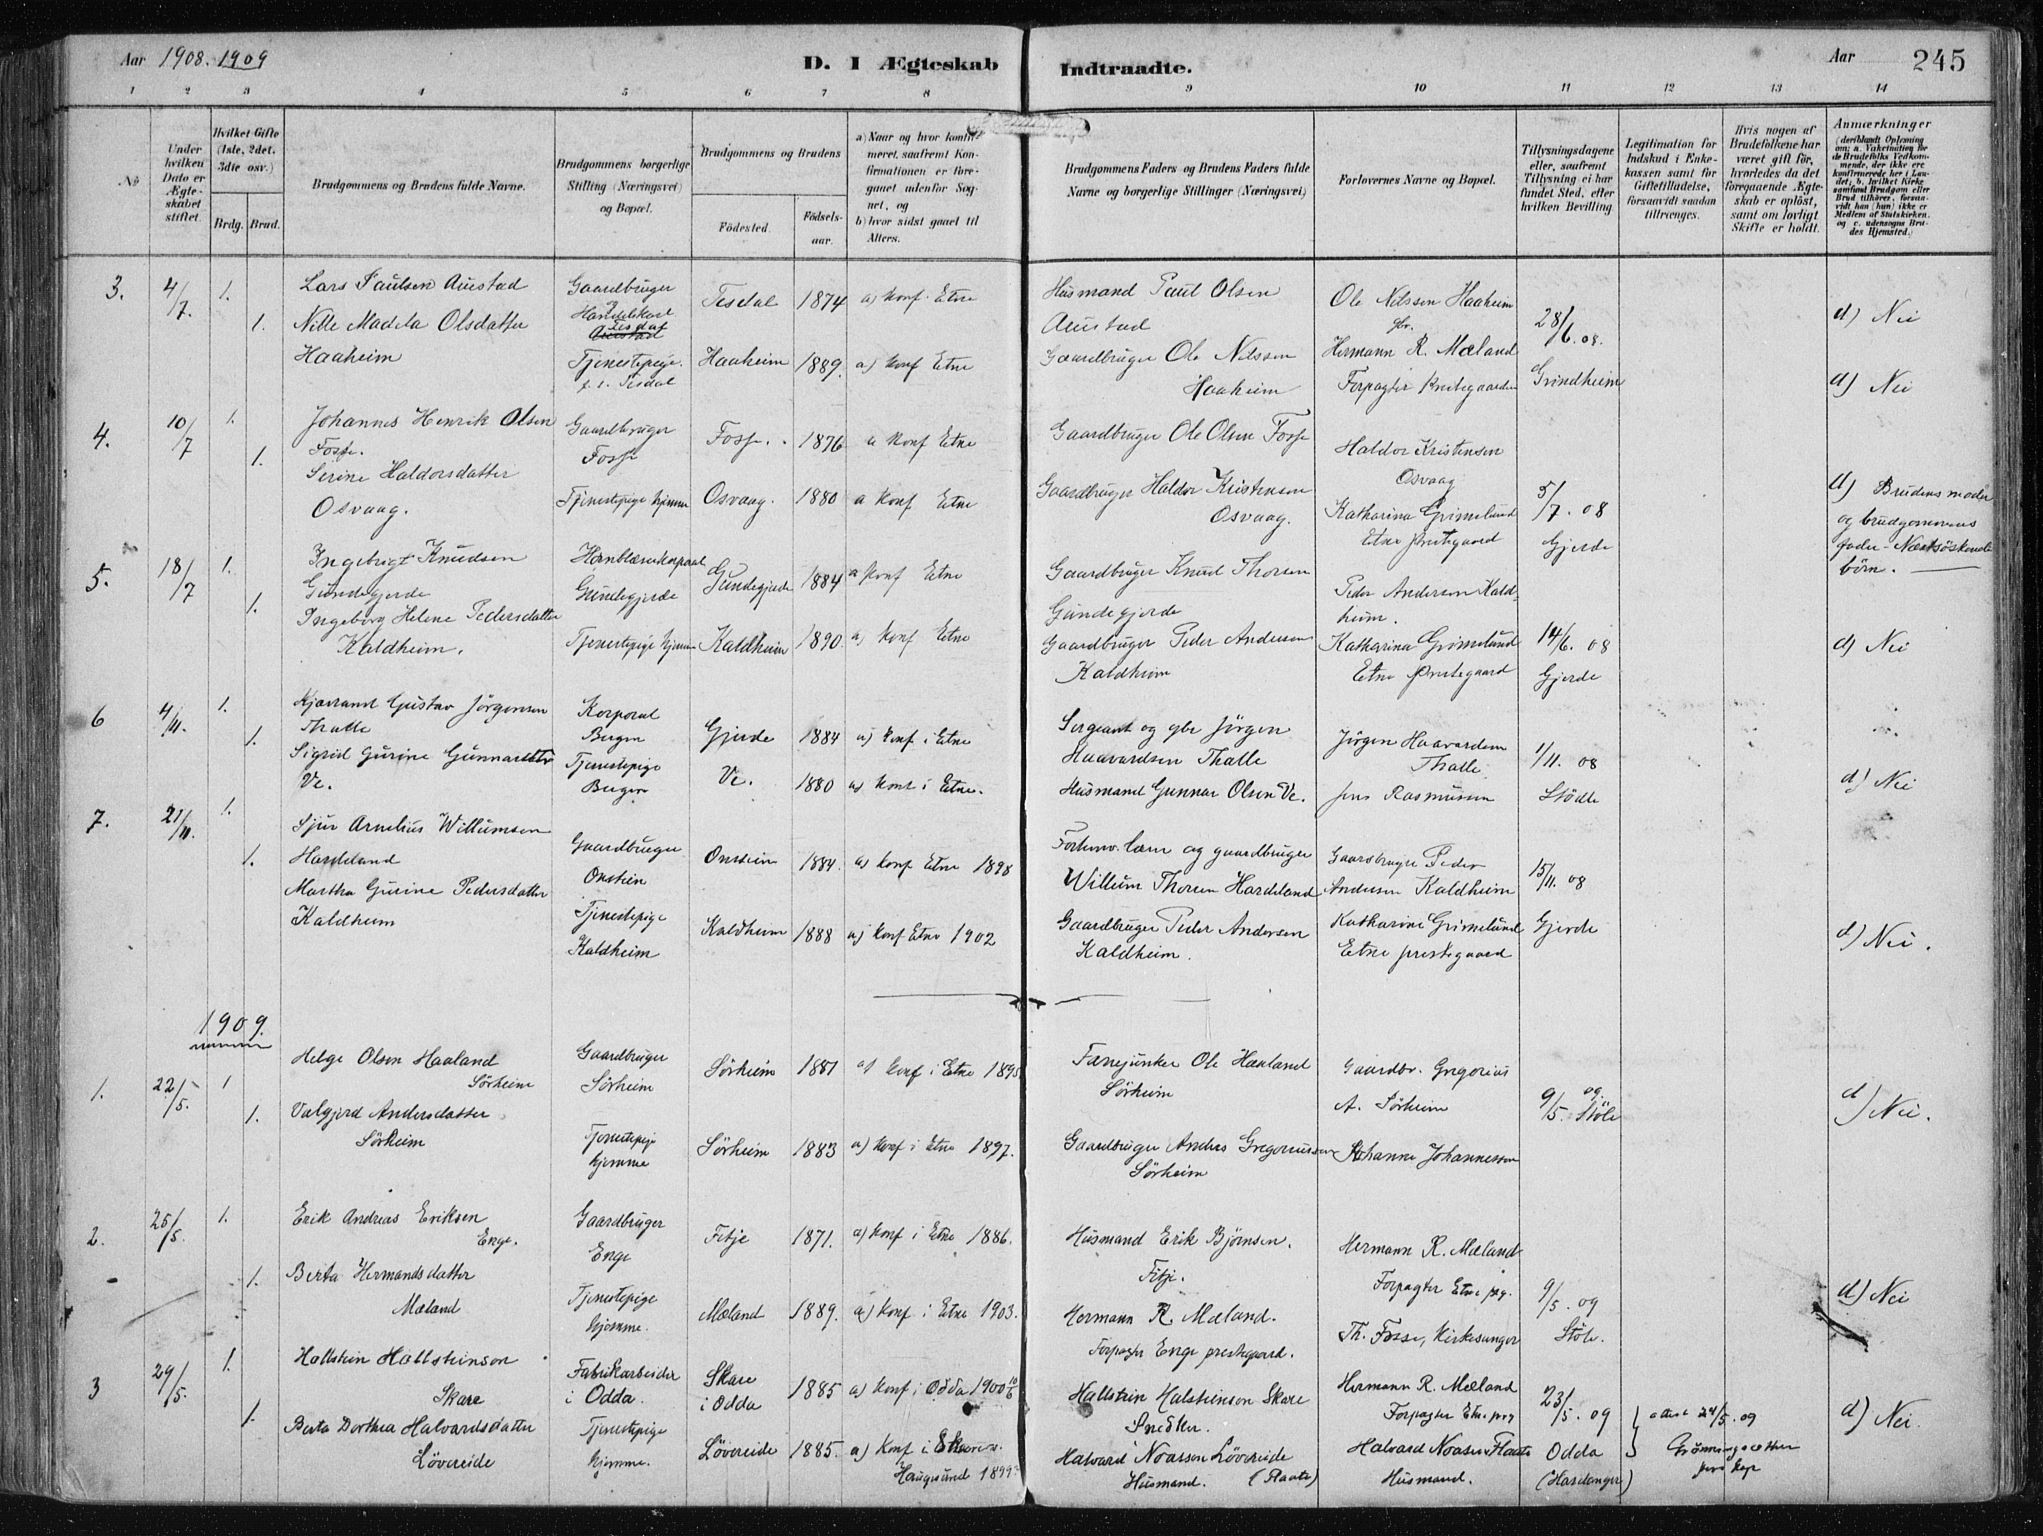 Aar 1908. 1909
D. I Ægteskab Indtraadte.
Aar 245
1 2 3 4 5 6 7 8 9 10 11 12 13 14
No
Under hvilken Dato er Ægteskabet stiftet.
Hvilket Gifte (1ste, 2det, 3die osv.)
Brdg. Brud.
Brudgommens og Brudens fulde Navne.
Brudgommens borgerlige Stilling (Næringsvei) og Bopæl.
Brudgommens og Brudens
Födested.
Födsels-aar.
a) Naar og hvor konfirmeret, saafremt Konfirmationen er foregaaet udenfor Sognet, og
b) hvor sidst gaaet til Alters.
Brudgommens Faders og Brudens Faders fulde Navne og borgerlige Stillinger (Næringsvei)
Forlovernes Navne og Bopæl.
Tillysningsdagene eller, saafremt Tillysning ei har fundet Sted, efter hvilken Bevilling
Legitimation for Indskud i Enkekassen samt for Giftetilladelse, forsaavidt saadan tiltrænges.
Hvis nogen af Brudefolkene har været gift för, hvorledes da det foregaaende Ægteskab er oplöst, samt om lovligt Skifte er holdt.
Anmærkninger
3. 4/7. 1. Lars Paulsen Austad Gaardbruger Tesdal 1874 a) Konf. Etne Husmand Paul Olsen Austad Ole Nilssen Haaheim 28/6. 08. d) Nei
1. Nille Madela Olsdatter Haaheim Tjenestepige. Tesdal Haaheim 1889. a) Konf Etne Gaardbruger Ole Nilssen Haaheim Hermann R. Mæland Forpagter Grindheim d) Nei
4. 10/7 1. Johannes Henrik Olsen Fosse. Gaardbruger Fosse Fosse. 1876 a Konf Etne Gaardbruger Ole Olsen Fosse Haldor Kristensen Osvaag
1. Serine Haldorsdatter Osvaag. Tjenestepige hjemme Osvaag. 1880 a Konf Etne Gaardbruger Haldor Kristensen Osvaag. Katharina Grimelund Etne Prestegaard 5/7. 08 Gjerde d) Brudens moder og brudgommens fader - Næstsöskende börn.
5. 18/7 1. Ingebrigt Knudsen Gundegjerde Hornblæserkorporal Gundegjerde Gundegjerde 1884 a Konf Etne Gaardbruger Knud Thorsen Gundegjerde Peder Andersen Kaldheim.
1. Ingeborg Helene Pedersdatter Kaldheim. Tjenestepige hjemme Kaldheim 1890. a) Konf Etne Gaardbruger Peder Andersen Kaldheim Katharina Grimelund Etne Prestegaard 14/6. 08 Gjerde d) Nei
6 4/11. 1. Gustav Jörgensen Thatle Korporal Bergen Gjerde 1884 a) Konf i Etne Sergeant og gbr Jörgen Haavardsen Thatle Jörgen Haavardsen Thatle. 1/11. 08
1. Sigrid Gurine Gunnarsdatter Ve. Tjenestepige Bergen Ve. 1880 a) Konf i Etne. Husmand Gunnar Olsen Ve. Jens Rasmussen Stödle d) Nei
7. 21/11. 1. Sjur Arnelius Willumsen Hardeland Gaardbruger Onstein Onstein 1884. a) Konf Etne 1898 gaardbruger Willum Thorsen Hardeland Gaardbruger Peder Andersen Kaldheim 15/11. 08
1. Martha Gurine Pedersdatter Kaldheim Tjenestepige Kaldheim Kaldheim 1888 a) Konf Etne 1902 Gaardbruger Peder Andersen Kaldheim. Katharine Grimelund Etne prestegaard Gjerde d) Nei.
1909.
1. 22/5. 1 Helge Olsen Haaland Sörheim Gaardbruger Sörheim Sörheim 1881 a) Konf i Etne 1895 Fanejunker Ole Haaland Sörheim Gaardbr. Gregorius A. Sörheim 9/5. 09 Stöle d) Nei.
1. Valgjerd Andersdatter Sörheim Tjenestepige hjemme Sörheim 1883 a) Konf i Etne 1897. Gaardbruger Anders Gregoriussen Sörheim Johanne Johannessen
2. 25/5. 1. Erik Andreas Eriksen Enge. Gaardbruger Enge Fitje 1871. a) Konf i Etne 1886. Husmand Erik Bjørnsen. Fitje. Hermann R. Mæland Forpagter Etne prg. 9/5. 09
1. Berta Hermandsdatter Mæland Tjenestepige hjemme. Mæland 1889. a) Konf i Etne 1903. Hermann R. Mæland. Forpagter Enge prestegaard. Th. Fosse, Kirkesanger Stöle. d) Nei
3 29/5. 1. Hallstein Hallsteinson Skare Fabrikarbeider i Odda. Skare i Odda 1885 a) Konf i Odda 1900 Hallstein Halsteinson Skare Snedker. Hermann R. Mæland Forpagter Etne prg 23/5. 09 attest 24/5. 09 d) Nei.
1. Berta Dorthea Halvardsdatter Lövereide Tjenestepige hjemme. Lövereide 1885. a) Konf i Skaare Haugesund 1899 Halvard Noassen Lövereide Husmand. (Flaate) Halvard Noasen Flaate Husmand. Odda (Hardanger)